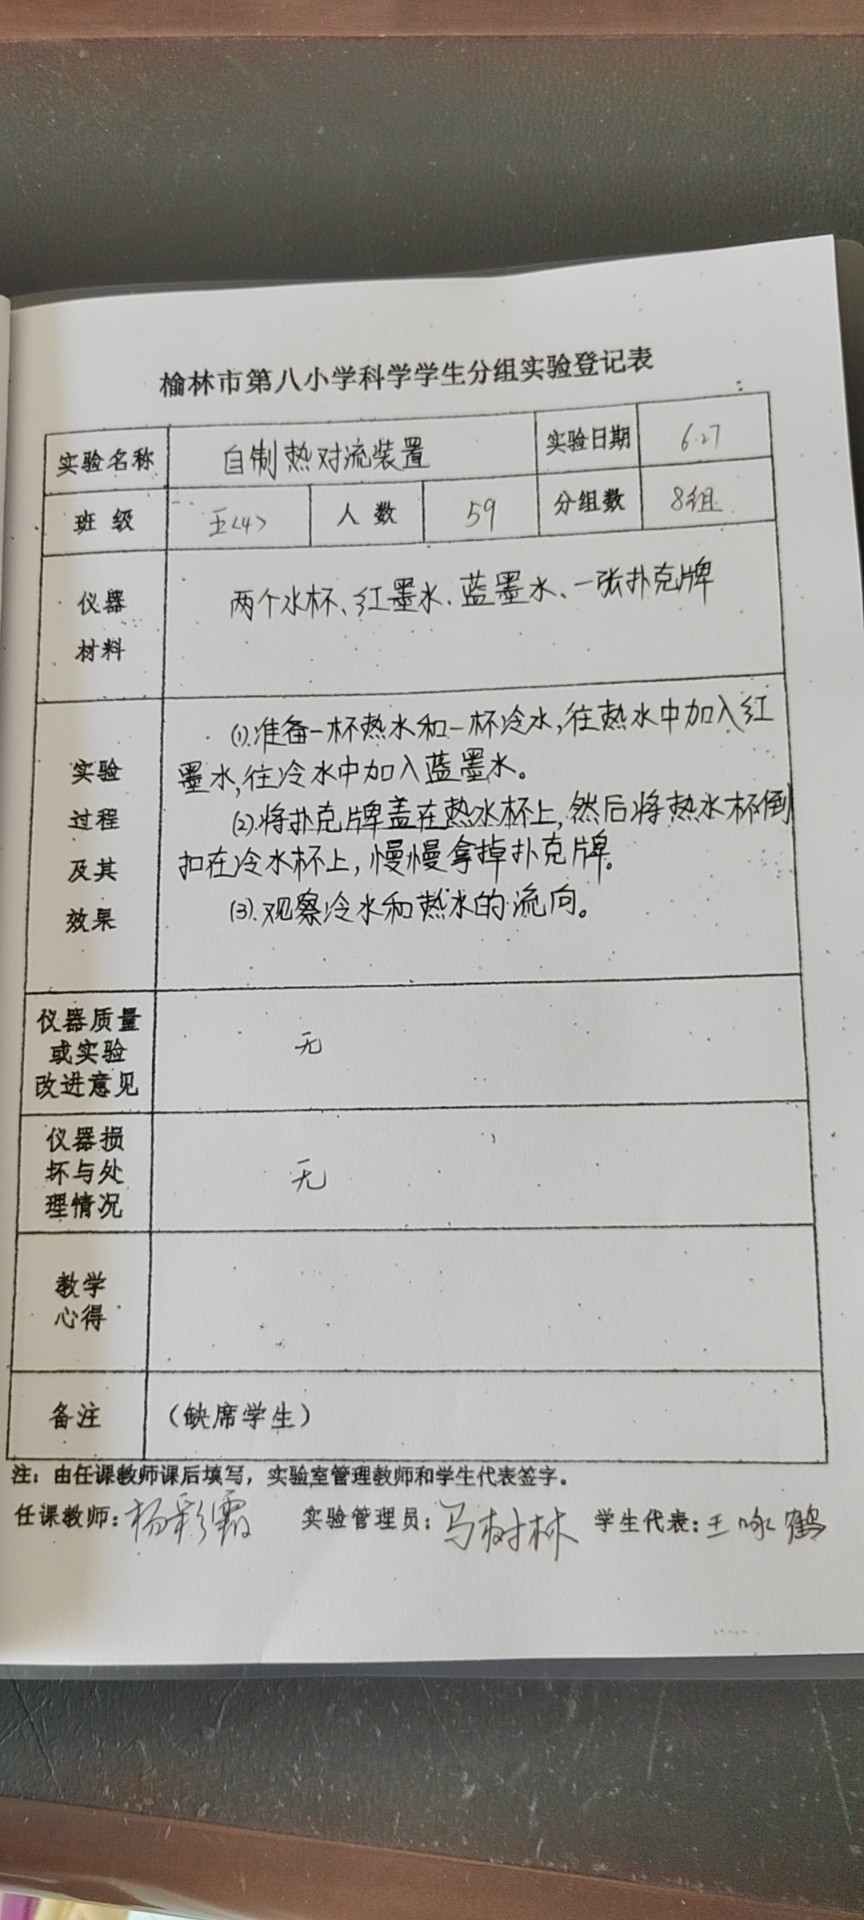 榆林市第八小学科学学生分组实验登记表
实验名称 自制热对流装置 实验日期 6.27
班级 五(4) 人数 59 分组数 8组
仪器 两个水杯、红墨水、蓝墨水、一张扑克牌
材料
(1).准备一杯热水和一杯冷水,往热水中加入红
实验 墨水,往冷水中加入蓝墨水。
过程 (2).将扑克牌盖在热水杯上,然后将热水杯倒
及其 扣在冷水杯上,慢慢拿掉扑克牌。
效果 (3).观察冷水和热水的流向。
仪器质量
或实验 无
改进意见
仪器损
坏与处 无
理情况
教学
心得
备注 (缺席学生)
注：由任课教师课后填写，实验室管理教师和学生代表签字。
任课教师：杨彩霞 实验管理员：马树林 学生代表：王咏鹤